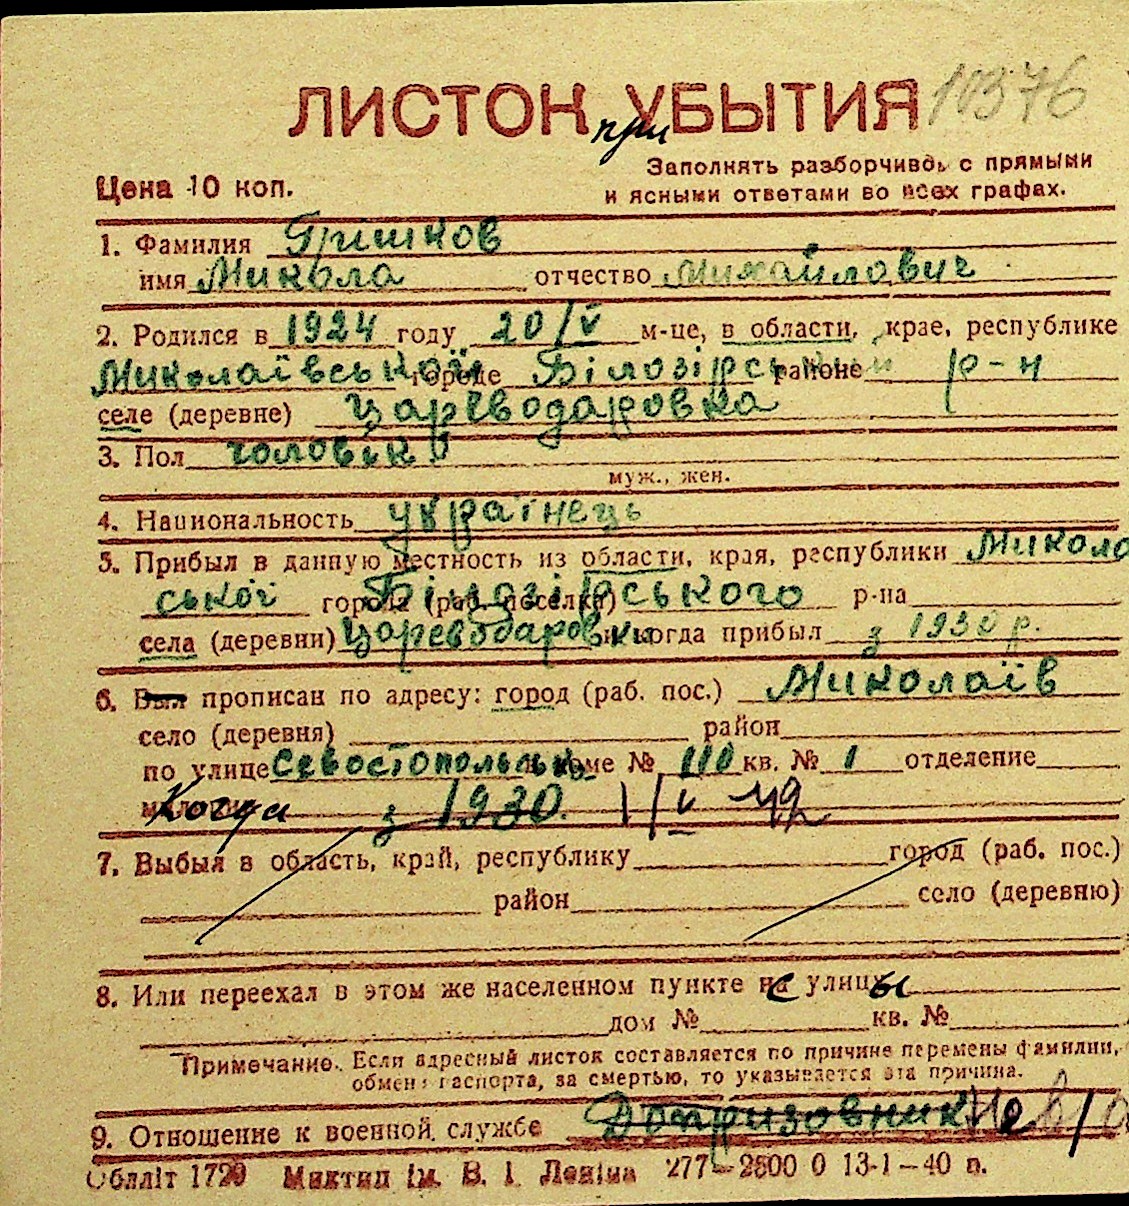 10376
ЛИСТОК при УБЫТИЯ
Заполнять разборчиво, с прямыми
Цена 10 коп.
и ясными ответами во всех графах.
1. Фамилия Грішков
имя Микола отчество Михайлович
2. Родился в 1924 году 20/V м-це, в области, крае, республике
Миколаївської городе Білозірський районе р-н
селе (деревне) Цареводаровка
3. Пол чоловікй
муж., жен.
4. Национальность українець
5. Прибыл в данную местность из области, края, республики Микола
ської города (раб. поселка) Білозірського р-на
села (деревни) Цареводаровки и когда прибыл з 1930 р.
6. Был прописан по адресу: город (раб. пос.) Миколаїв
село (деревня) район
по улице Севостопольськ доме № 110 кв. № 1 отделение
милиции Когда з 1930. 1/V 42
7. Выбыл в область, край, республику город (раб. пос.)
район село (деревню)
8. Или переехал в этом же населенном пункте на с улицы
дом № кв. №
Примечание. Если адресный листок составляется по причине перемены фамилии,
обмена паспорта, за смертью, то указывается эта причина.
9. Отношение к военной службе Допризовник Не в/о
Обллiт 1729 Миктип iм. В. I. Ленiна 277—2800 0 13-1—40 п.